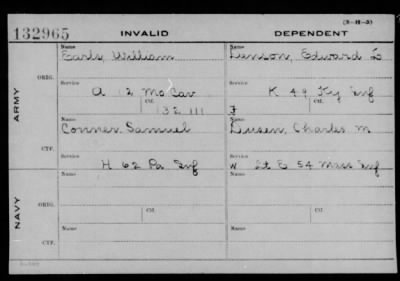 (3-11-3)
132965 INVALID DEPENDENT
ARMY
ORIG.
Name Name
Earls, William Denson, Edward
Service Service
A 12 Mo Cav K 49 Ky Inf
Ctf. Ctf.
132 111
CTF.
Name Name
Conner Samuel Dusen, Charles M
Service Service
H 62 Pa Inf W Lt E 54 Mass Inf
NAVY
ORIG.
Name Name
Ctf. Ctf.
CTF.
Name Name